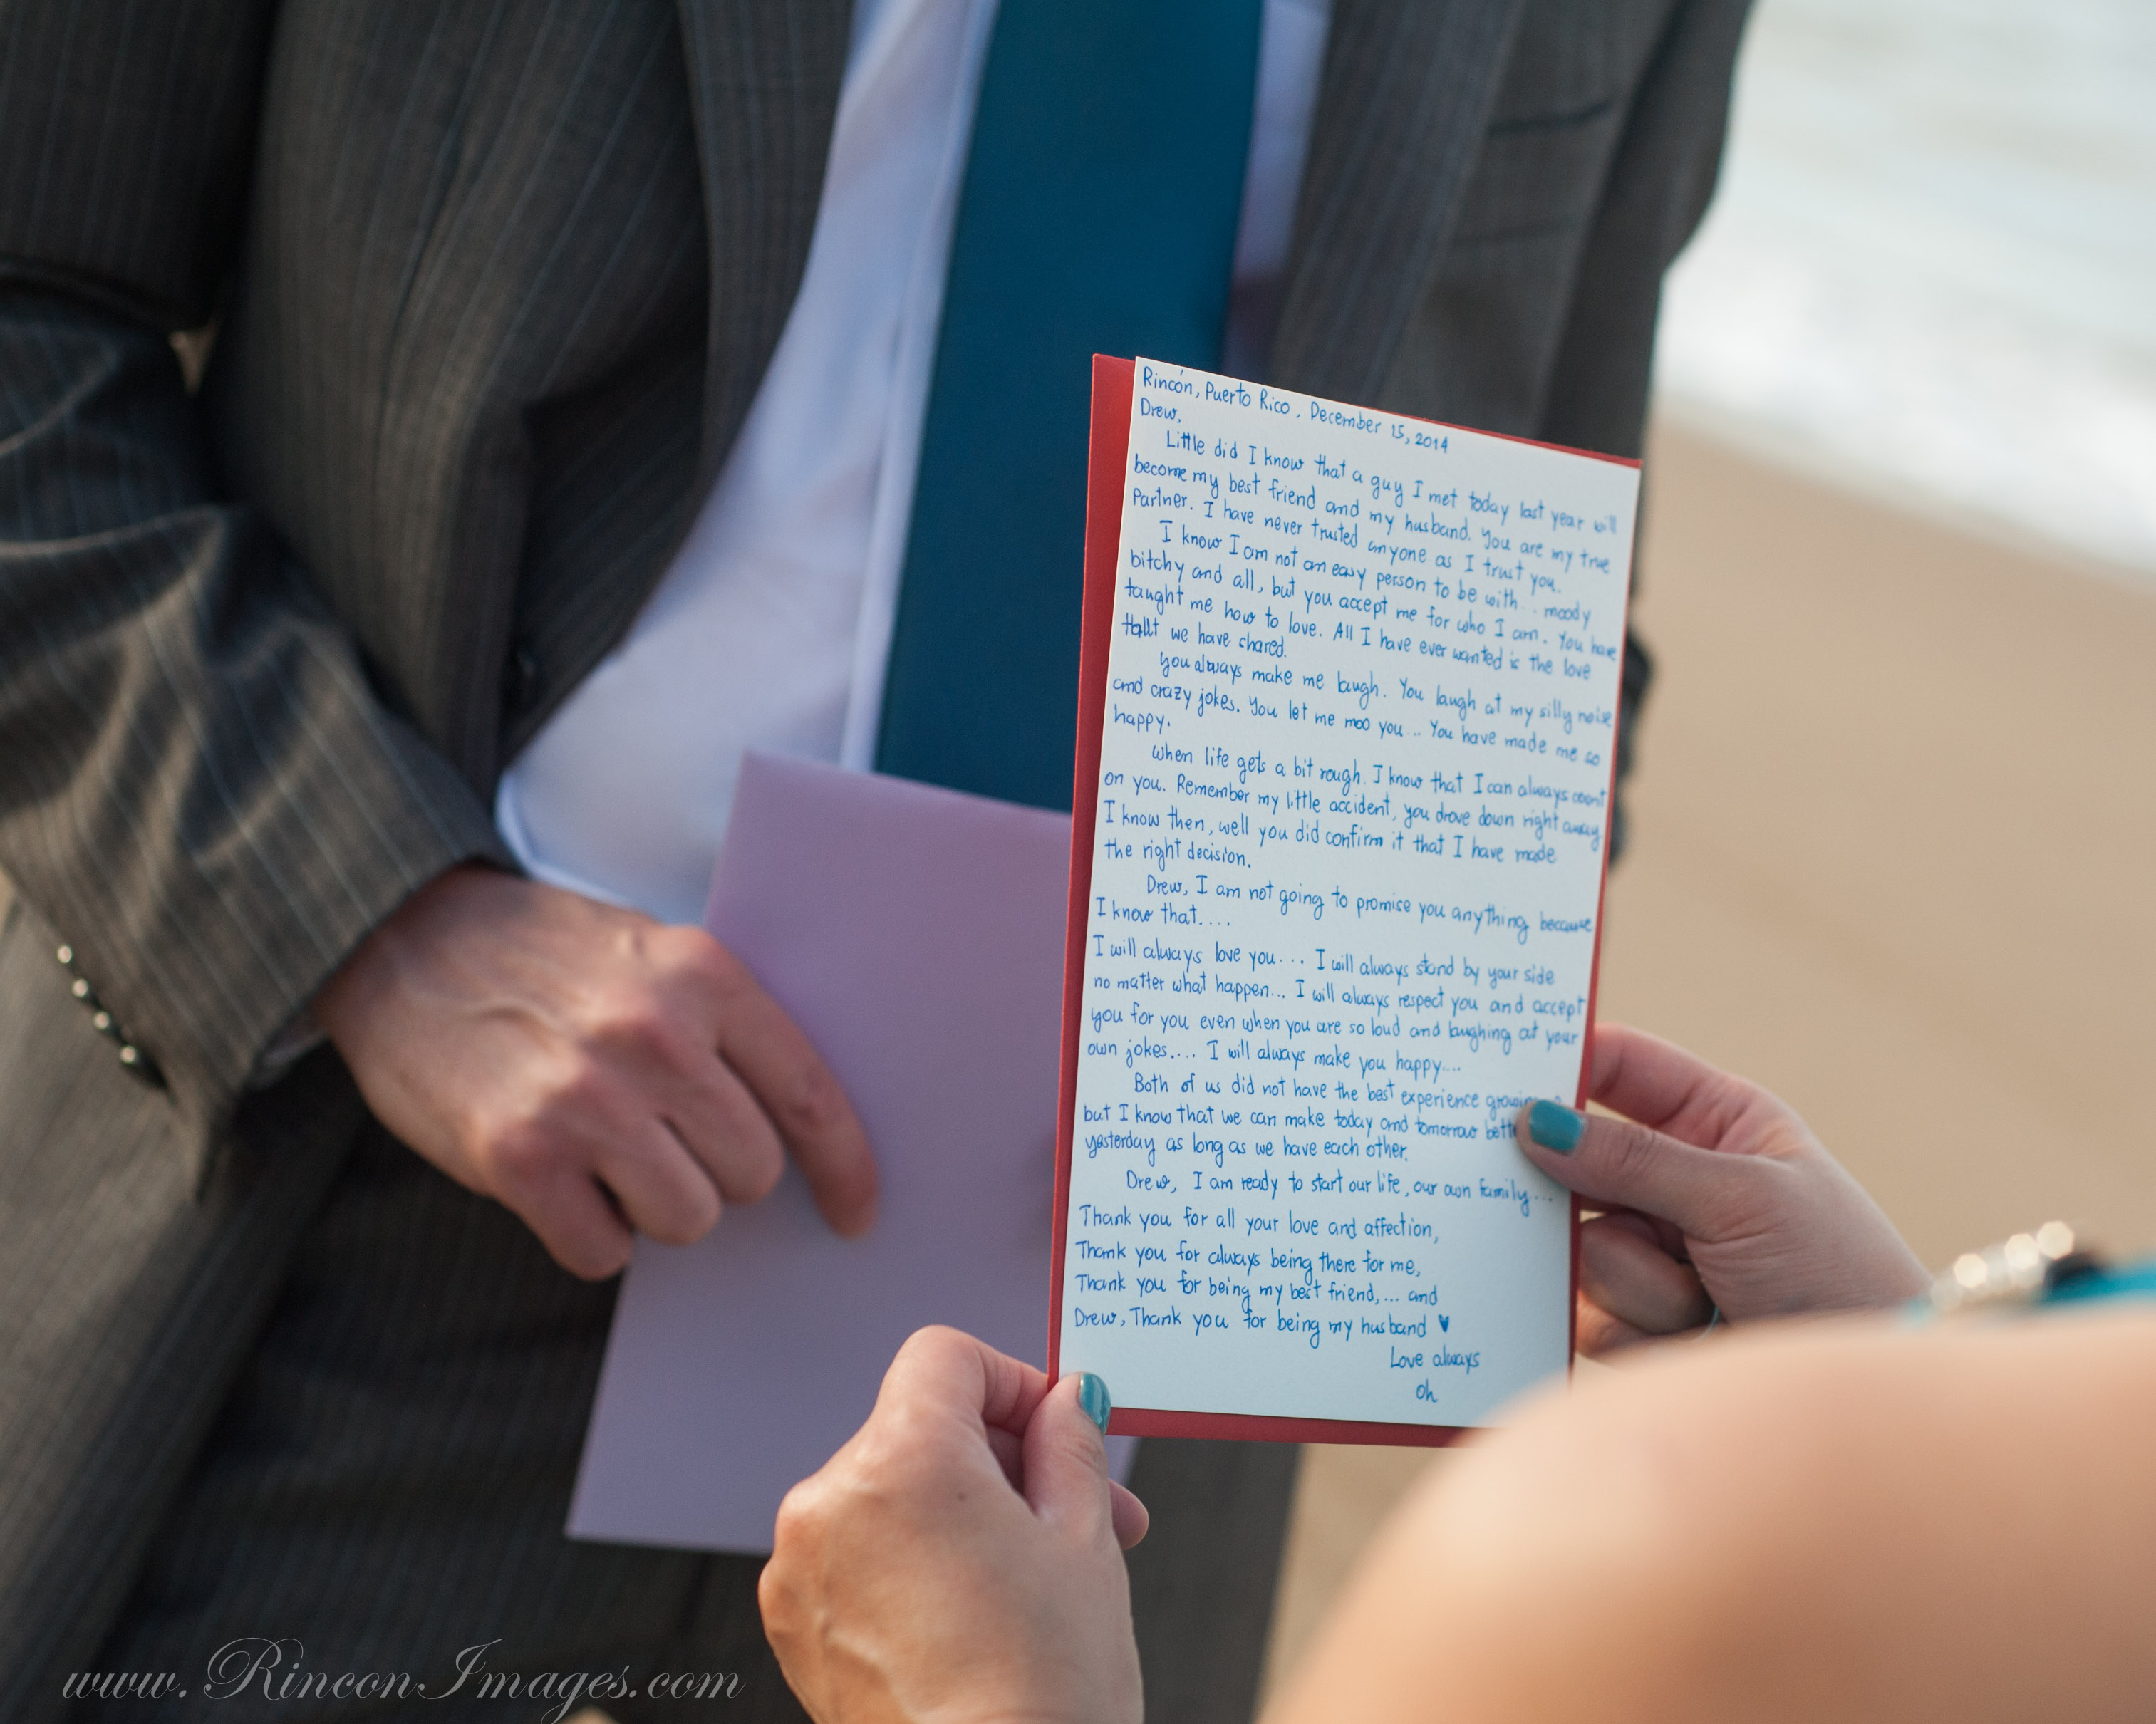 Rincón, Puerto Rico, December 15, 2014
Drew,
Little did I know that a guy I met today last year will
become my best friend and my husband. You are my true
Partner. I have never trusted anyone as I trust you.
I know I am not an easy person to be with.. moody
bitchy and all, but you accept me for who I am. You have
taught me how to love. All I have ever wanted is the love
we have shared.
You always make me laugh. You laugh at my silly noise
and crazy jokes. You let me moo you.. You have made me so
happy.
When life gets a bit rough. I know that I can always count
on you. Remember my little accident, you drove down right away
I know then, well you did confirm it that I have made
the right decision.
Drew, I am not going to promise you anything because
I know that....
I will always love you... I will always stand by your side
no matter what happen... I will always respect you and accept
you for you even when you are so loud and laughing at your
own jokes.... I will always make you happy....
Both of us did not have the best experience
but I know that we can make today and tomorrow
yesterday as long as we have each other.
Drew, I am ready to start our life, our own family...
Thank you for all your love and affection,
Thank you for always being there for me,
Thank you for being my best friend,... and
Drew, Thank you for being my husband ♥
Love always
Oh
www.RinconImages.com